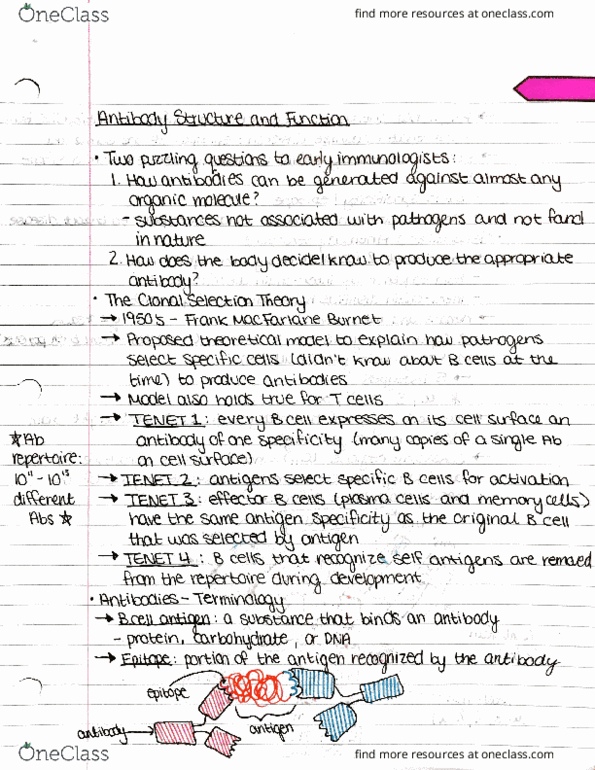 OneClass
find more resources at oneclass.com
Antibody Structure and Function
• Two puzzling questions to early immunologists:
1. How antibodies can be generated against almost any
organic molecule?
- substances not associated with pathogens and not found
in nature
2. How does the body decide/know to produce the appropriate
antibody?
• The Clonal Selection Theory
→ 1950's - Frank MacFarlane Burnet
→ Proposed theoretical model to explain how pathogens
select specific cells (didn't know about B cells at the
time) to produce antibodies
→ Model also holds true for T cells
→ TENET 1: every B cell expresses on its cell surface an
antibody of one specificity (many copies of a single Ab
on cell surface)
★Ab
repertoire:
10¹¹-10¹⁵
different
Abs★
→ TENET 2: antigens select specific B cells for activation
→ TENET 3: effector B cells (plasma cells and memory cells)
have the same antigen specificity as the original B cell
that was selected by antigen
→ TENET 4: B cells that recognize self antigens are removed
from the repertoire during development
• Antibodies - Terminology
→ B cell antigen: a substance that binds an antibody
- protein, carbohydrate, or DNA
→ Epitope: portion of the antigen recognized by the antibody
epitope
antibody
antigen
OneClass
find more resources at oneclass.com